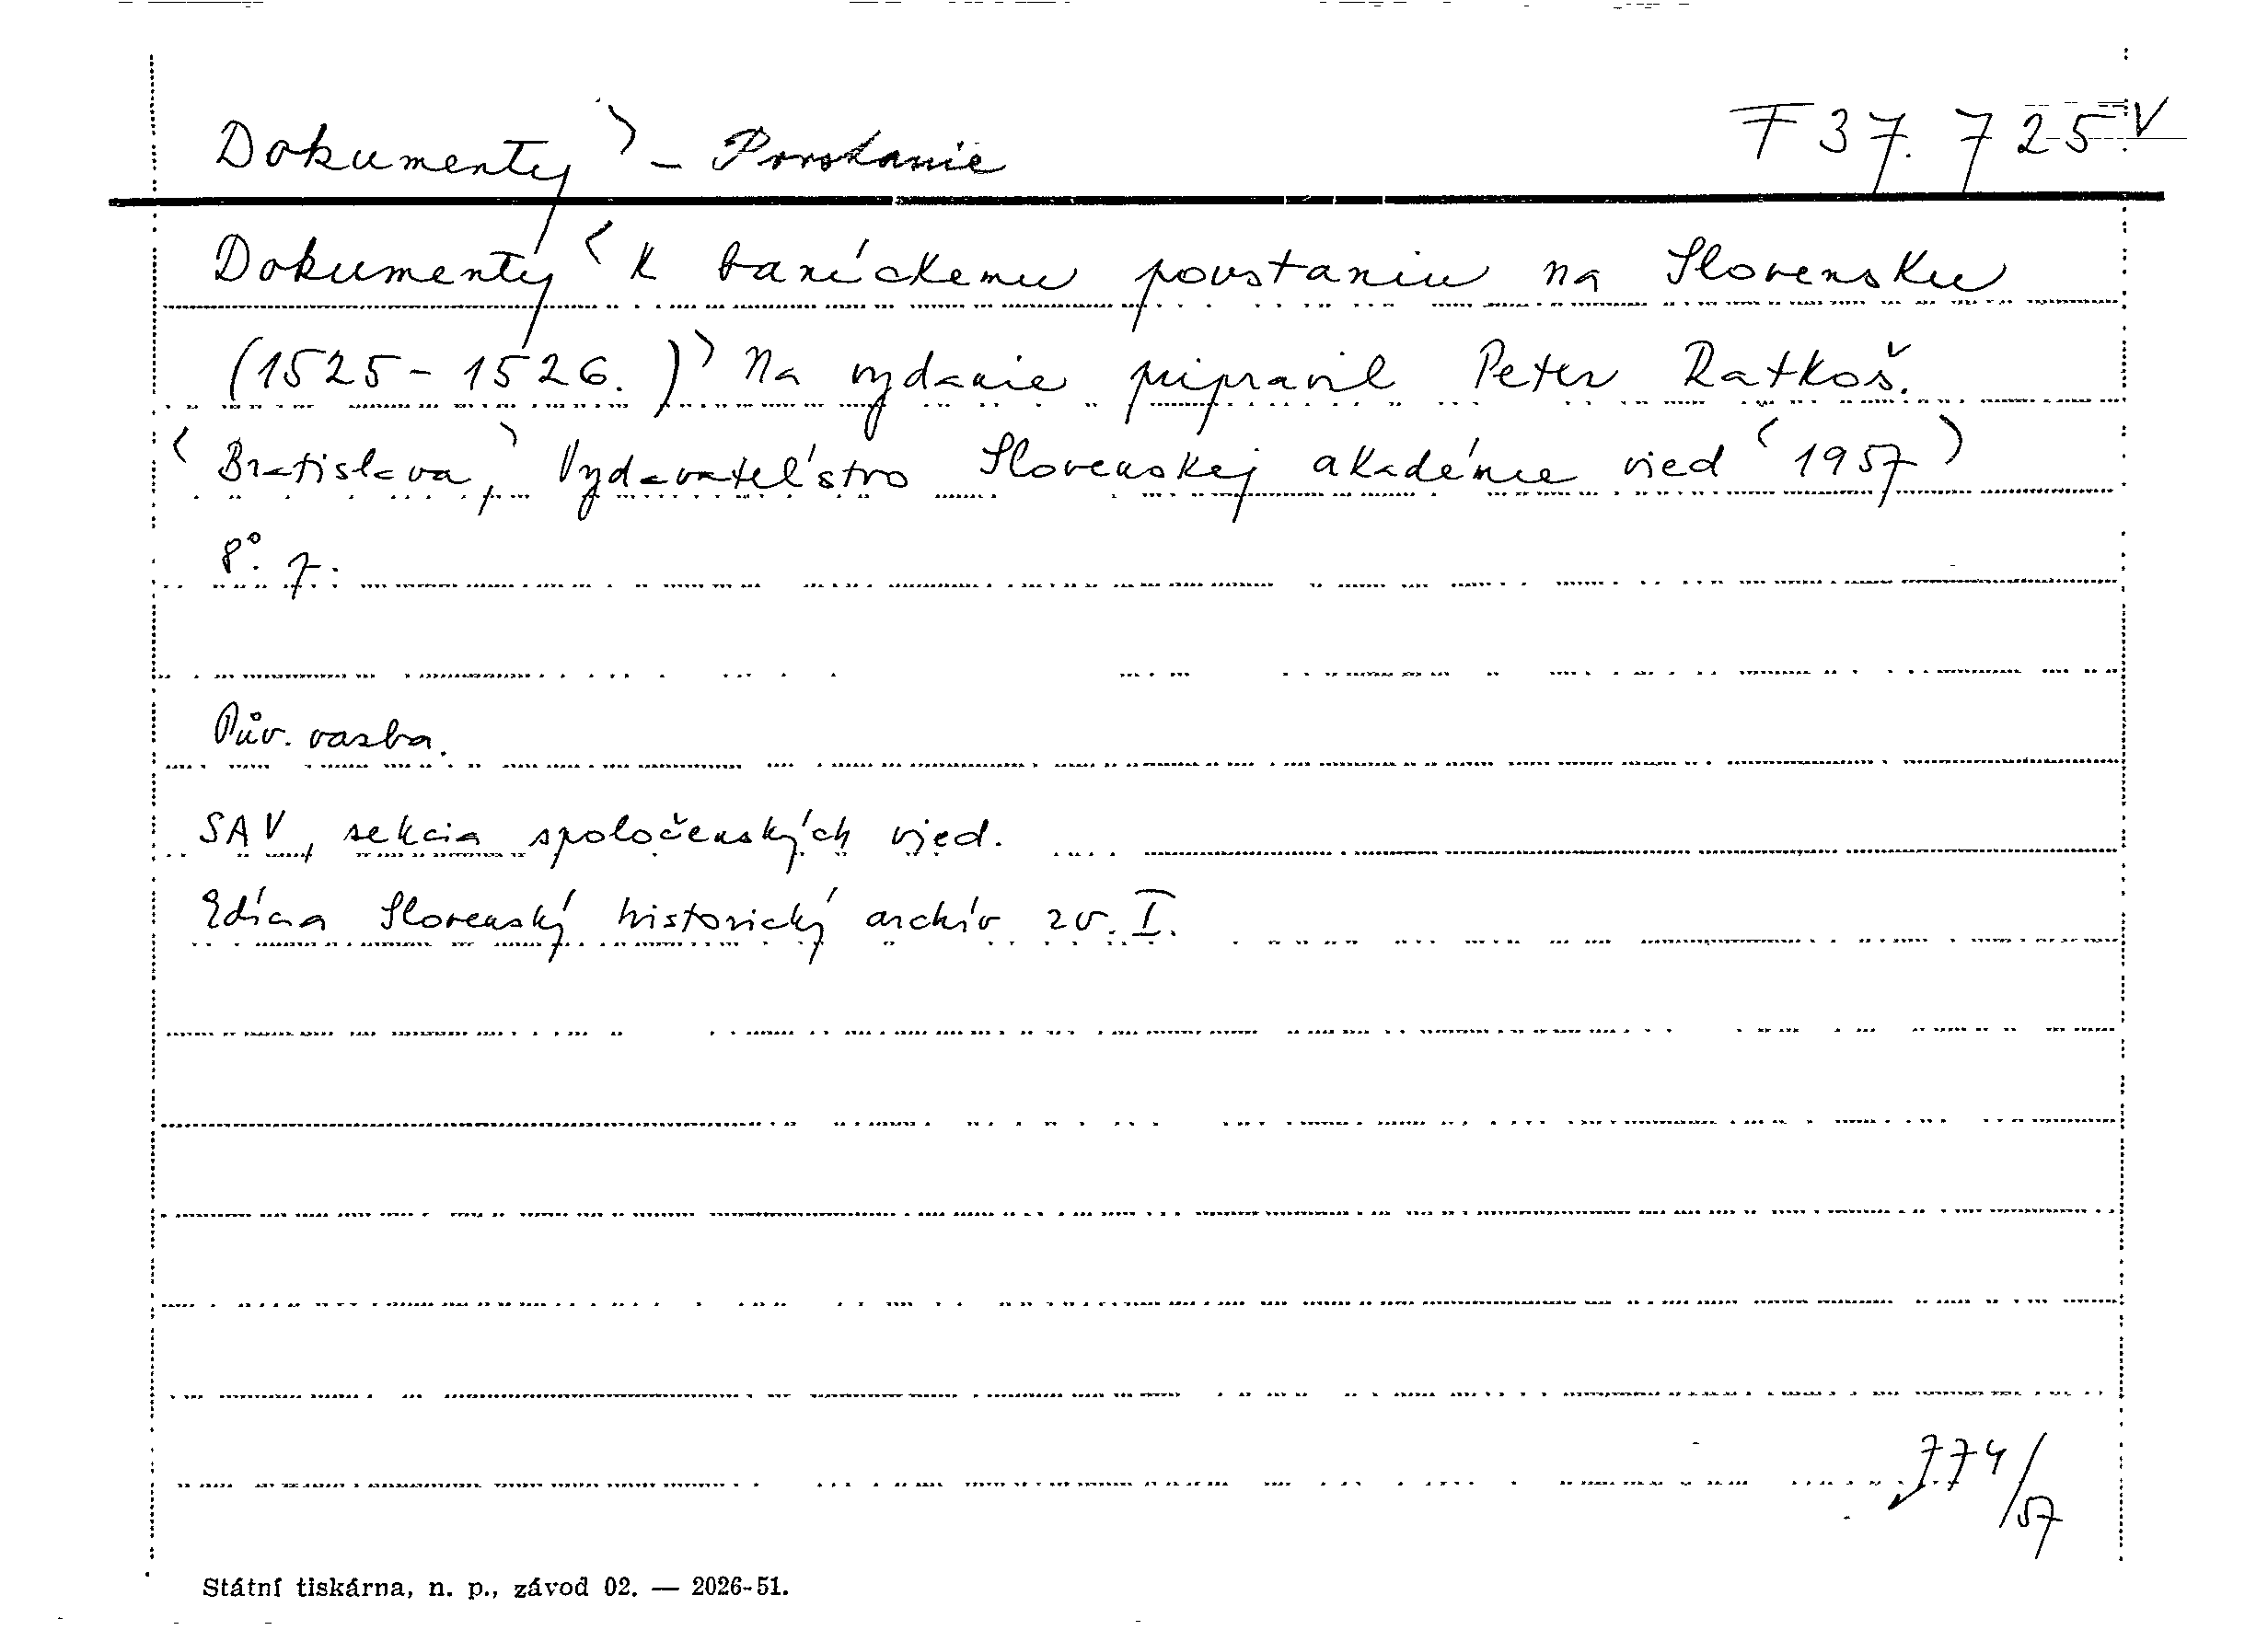 Dokumenty⟩ - Povstanie F 37.725 V
Dokumenty ⟨ k baníckemu povstaniu na Slovensku
(1525-1526.)⟩ Na vydanie pripravil Peter Ratkoš.
⟨Bratislava,⟩ Vydavateľstvo Slovenskej akadémie vied ⟨1957⟩
8°. 7.
Pův. vazba.
SAV, sekcia spoločenských vied.
Edícia Slovenský historický archív zv. I.
774/57
Státní tiskárna, n. p., závod 02. — 2026-51.